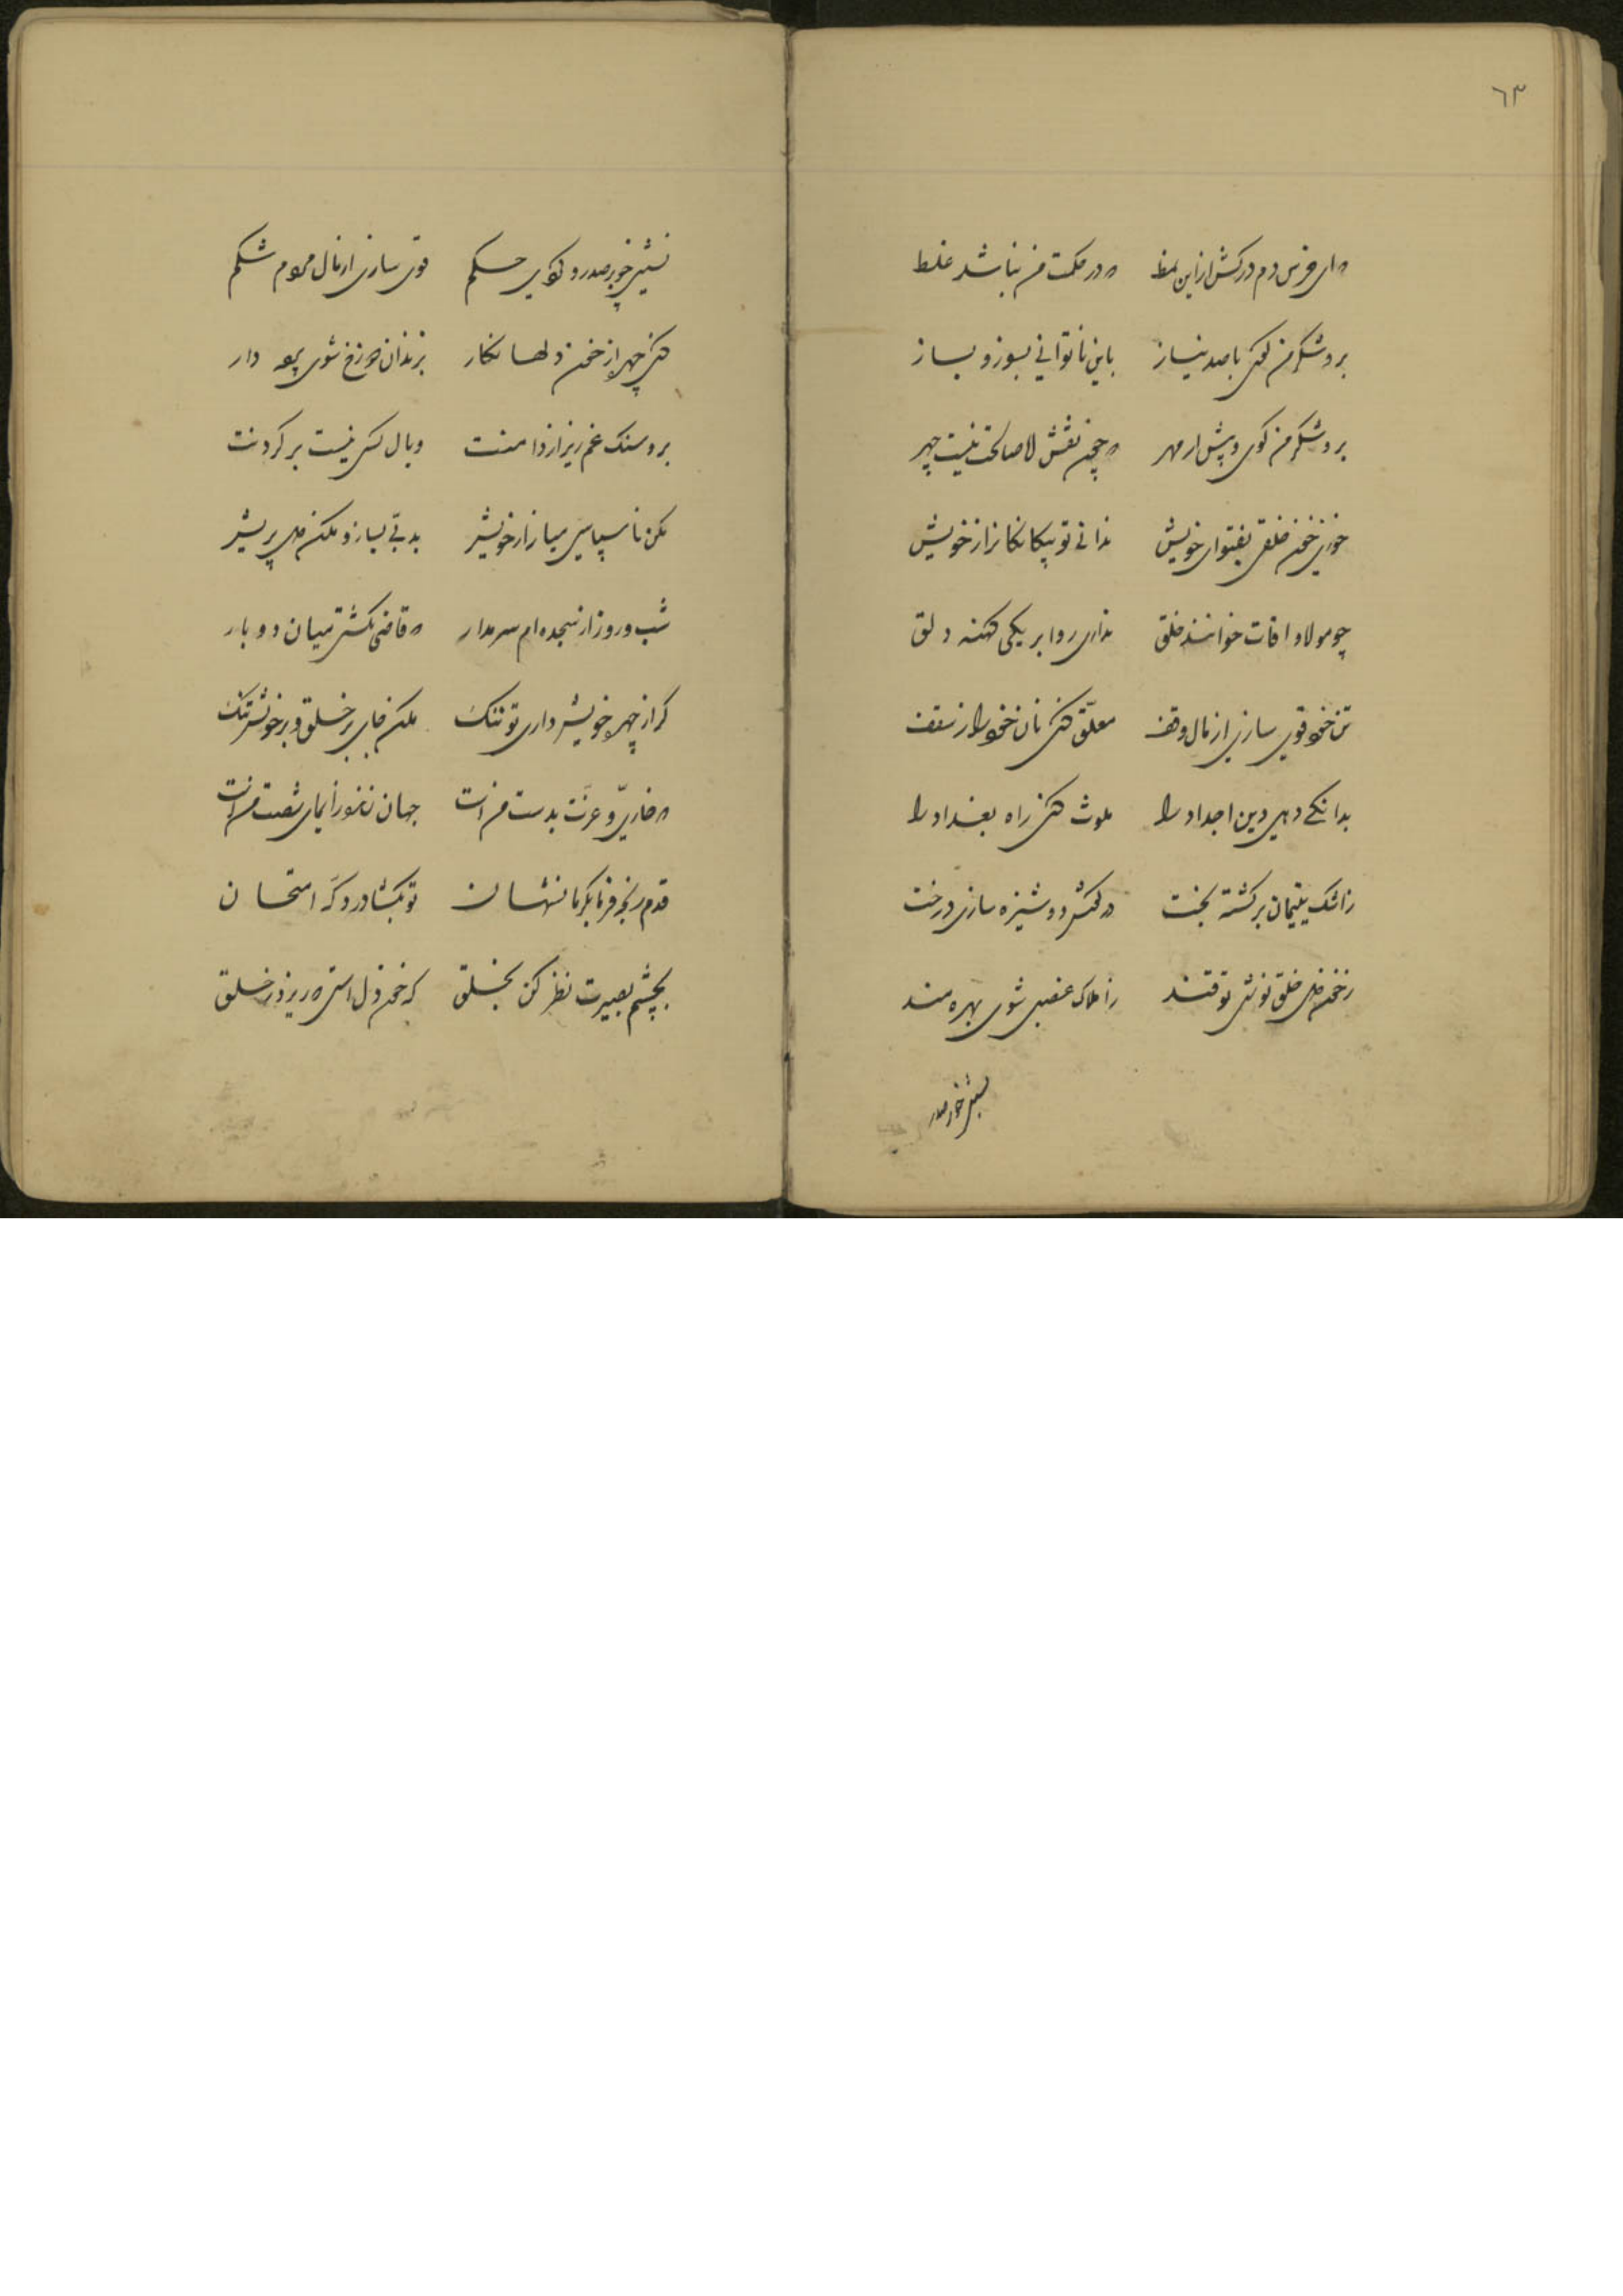 ٦٣
که ای خرس دم درکش از این نمط که در حکمت من نباشد غلط
برو شکر من کن با صد نیاز باین ناتوانی بسوز و بساز
برو شکر من کوی و پیش ار مهر که چون نقش لا صالحت نیست چهر
خوری خون خلقی بفتوای خویش ندانی تو بیکانکانرا ز خویش
چو مولا و اقات خوانند خلق نداری روا بر یکی کهنه دلق
تن خود قوی سازی از مال وقف معلّق کنی نان خود را ز سقف
بدانکی دهی دین اجداد را ملوث کنی راه بغداد را
ز اشک یتیمان برکشته بخت در کشی و دوشیزه سازی درخت
ز خون دل خلق نوشی تو قند ز املاک غصبی شوی بهره مند
نشینی خود بصدر
نشینی خود بصدر و کوی حکم قوی سازی از مال مردم شکم
کنی چهر از خون دلها نکار بزندان دوزخ شوی پرده دار
برو سنک غم ریز از دامنت وبال کسی نیست بر کردنت
مکن ناسپاسی میازار خویش بدبی بساز و مکن دل پریش
شب و روز از سجده ام سر مدار که قاضی نکشتی میان دو بار
کر از چهر خویش داری تو ننک مکن جای بر خلق و بر خویش تنک
که خاریّ و عزّت بدست من است جهان زنور ایمای شصت من است
قدم رنجه فرما بکرمانشهان تو بکشا در دکّه امتحان
بچشم بصیرت نظر کن بخلق که خون دل استی که ریزد ز خلق